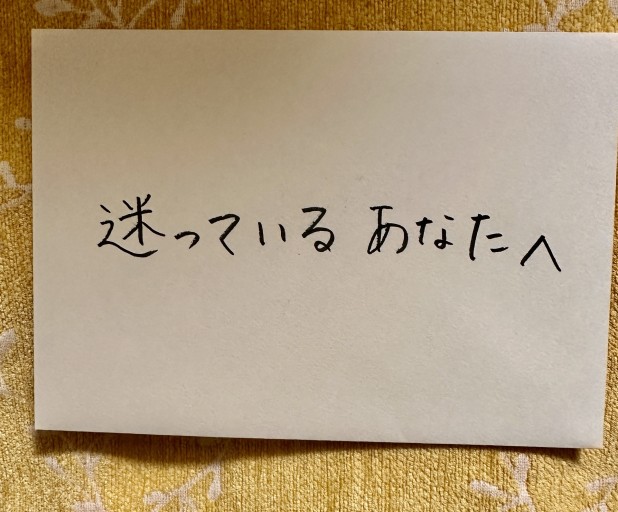 迷っている あなたへ